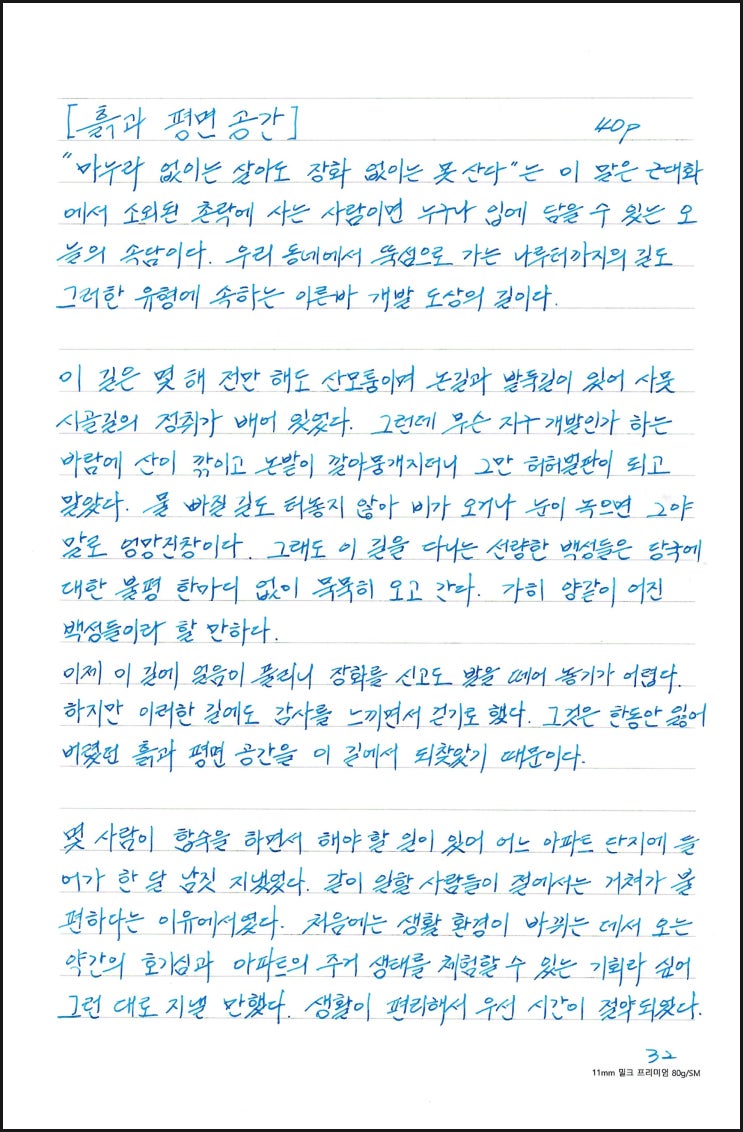 [흙과 평면 공간]
40p
"마누라 없이는 살아도 장화 없이는 못 산다"는 이 말은 근대화
에서 소외된 촌락에 사는 사람이면 누구나 입에 담을 수 있는 오
늘의 속담이다. 우리 동네에서 뚝섬으로 가는 나루터까지의 길도
그러한 유형에 속하는 이른바 개발 도상의 길이다.
이 길은 몇 해 전만 해도 산모퉁이며 논길과 밭둑길이 있어 사뭇
시골길의 정취가 배어 있었다. 그런데 무슨 지구 개발인가 하는
바람에 산이 깎이고 논밭이 깔아뭉개지더니 그만 허허벌판이 되고
말았다. 물 빠질 길도 터놓지 않아 비가 오거나 눈이 녹으면 그야
말로 엉망진창이다. 그래도 이 길을 다니는 선량한 백성들은 당국에
대한 불평 한마디 없이 묵묵히 오고 간다. 가히 양같이 어진
백성들이라 할 만하다.
이제 이 길에 얼음이 풀리니 장화를 신고도 발을 떼어 놓기가 어렵다.
하지만 이러한 길에도 감사를 느끼면서 걷기로 했다. 그것은 한동안 잃어
버렸던 흙과 평면 공간을 이 길에서 되찾았기 때문이다.
몇 사람이 합숙을 하면서 해야 할 일이 있어 어느 아파트 단지에 들
어가 한 달 남짓 지냈었다. 같이 일할 사람들이 절에서는 거처가 불
편하다는 이유에서였다. 처음에는 생활 환경이 바뀌는 데서 오는
약간의 호기심과 아파트의 주거 생태를 체험할 수 있는 기회라 싶어
그런 대로 지낼 만했다. 생활이 편리해서 우선 시간이 절약되었다.
32
11mm 밀크 프리미엄 80g/SM